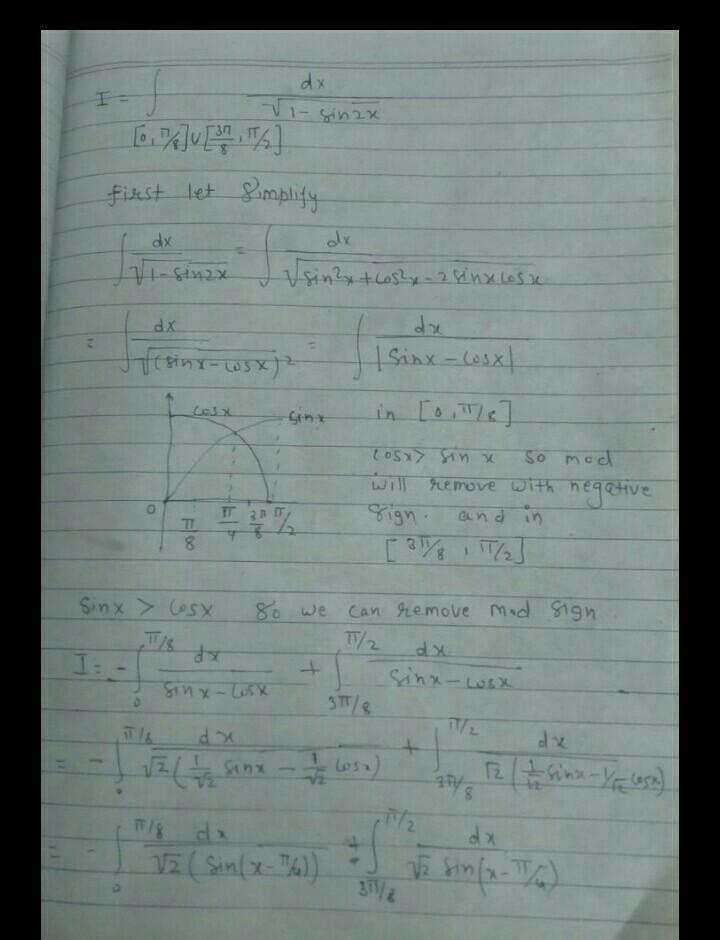 I = ∫ dx / √(1 - sin2x)
[0, π/8] ∪ [3π/8, π/2]
first let Simplify
∫ dx / √(1 - sin2x) = ∫ dx / √(sin²x + cos²x - 2 sinx cosx)
= ∫ dx / √(sinx - cosx)² = ∫ dx / |sinx - cosx|
cosx sinx
0 π/8 π/4 3π/8 π/2
in [0, π/8]
cosx > sin x so mod
will remove with negative
sign. and in
[3π/8, π/2]
sinx > cosx so we can remove mod sign
I = - ∫₀^(π/8) dx / (sinx - cosx) + ∫_(3π/8)^(π/2) dx / (sinx - cosx)
= - ∫₀^(π/8) dx / √2 (1/√2 sinx - 1/√2 cosx) + ∫_(3π/8)^(π/2) dx / √2 (1/√2 sinx - 1/√2 cosx)
= - ∫₀^(π/8) dx / √2 (sin(x - π/4)) + ∫_(3π/8)^(π/2) dx / √2 sin(x - π/4)